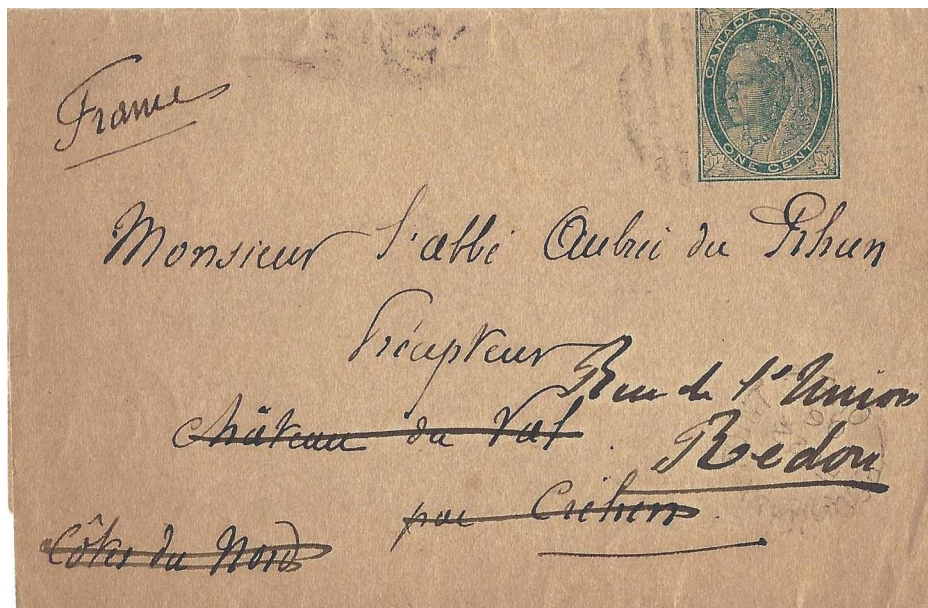 CANADA POSTAGE
ONE CENT
France
Monsieur l'abbé Aubrée du
Précepteur
Rue de l'Union
Château du Val
Redon
par Créhen
Côtes du Nord